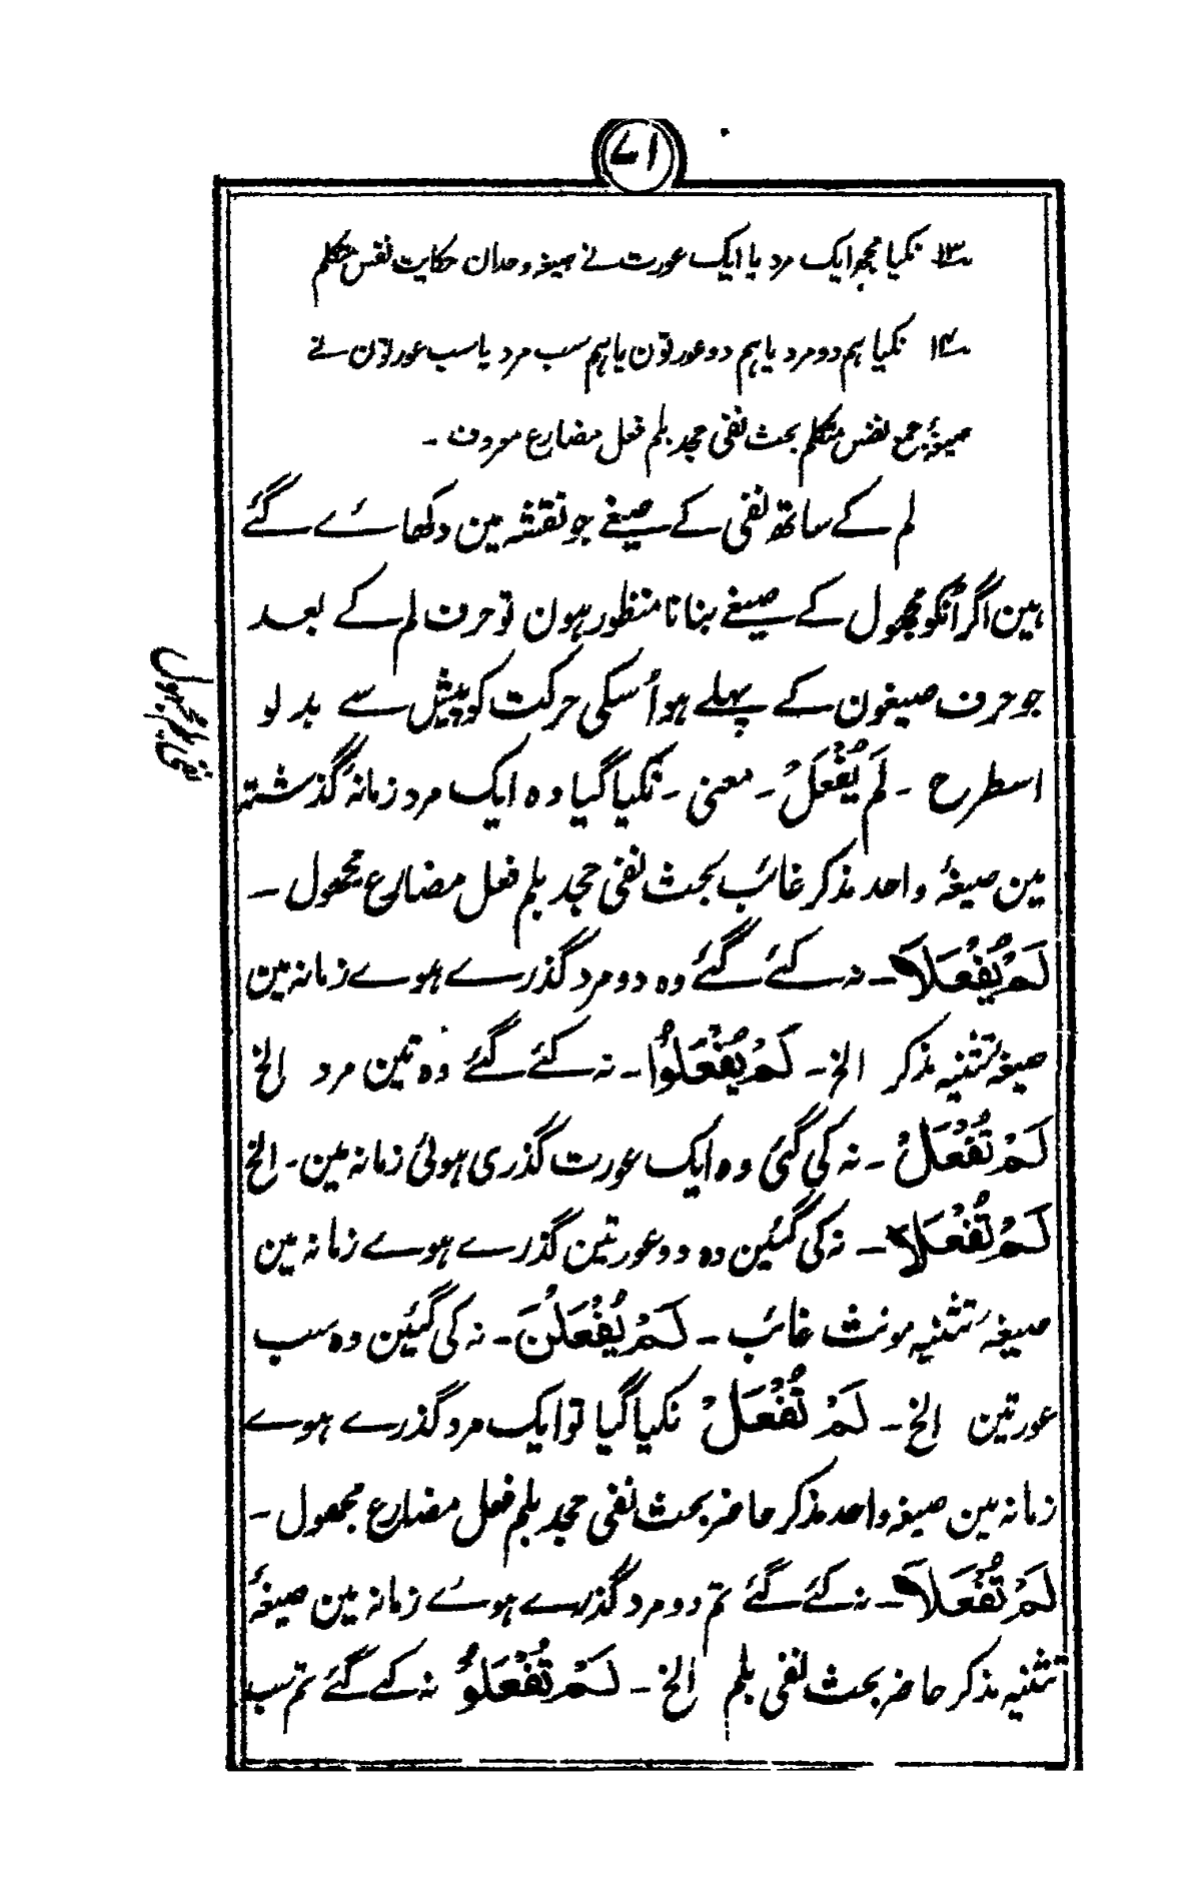 ۷۱
۱۳؎ نکیا مجھ ایک مرد یا ایک عورت نے صیغہ وحدان حکایت نفس متکلم
۱۴؎ نکیا ہم دو مرد یا ہم دو عورتون یا ہم سب مرد یا سب عورتون نے
صیغۂ جمع نفس متکلم بحث نفی جحد بلم فعل مضارع معروف ۔
لم کے ساتھ نفی کے صیغے جو نقشہ مین دکھائے گئے
ہین اگر اُنکو مجھول کے صیغے بنانا منظور ہون تو حرف لم کے بعد
جو حرف صیغون کے پہلے ہو اُسکی حرکت کو پیش سے بدلو
اسطرح ۔ لَم یُفْعَلْ ۔ معنی ۔ نکیا گیا وہ ایک مرد زمانۂ گذشتہ
مین صیغۂ واحد مذکر غائب بحث نفی جحد بلم فعل مضارع مجھول ۔
لَمْ یُفْعَلَا ۔ نہ کئے گئے وہ دو مرد گذرے ہوے زمانہ مین
صیغہ تثنیہ مذکر الخ ۔ لَمْ یُفْعَلُوْا ۔ نہ کئے گئے وہ تین مرد الخ
لَمْ تُفْعَلْ ۔ نہ کی گئی وہ ایک عورت گذری ہوئی زمانہ مین ۔ الخ
لَمْ تُفْعَلَا ۔ نہ کی گئین وہ دو عورتین گذرے ہوے زمانہ مین
صیغہ تثنیہ مونث غائب ۔ لَمْ یُفْعَلْنَ ۔ نہ کی گئین وہ سب
عورتین الخ ۔ لَمْ تُفْعَلْ نکیا گیا تو ایک مرد گذرے ہوے
زمانہ مین صیغہ واحد مذکر حاضر بحث نفی جحد بلم فعل مضارع مجھول ۔
لَمْ تُفْعَلَا ۔ نہ کئے گئے تم دو مرد گذرے ہوئے زمانہ مین صیغۂ
تثنیہ مذکر حاضر بحث نفی بلم الخ ۔ لَمْ تُفْعَلُوْا نہ کے گئے تم سب
نفی بلم مجہول